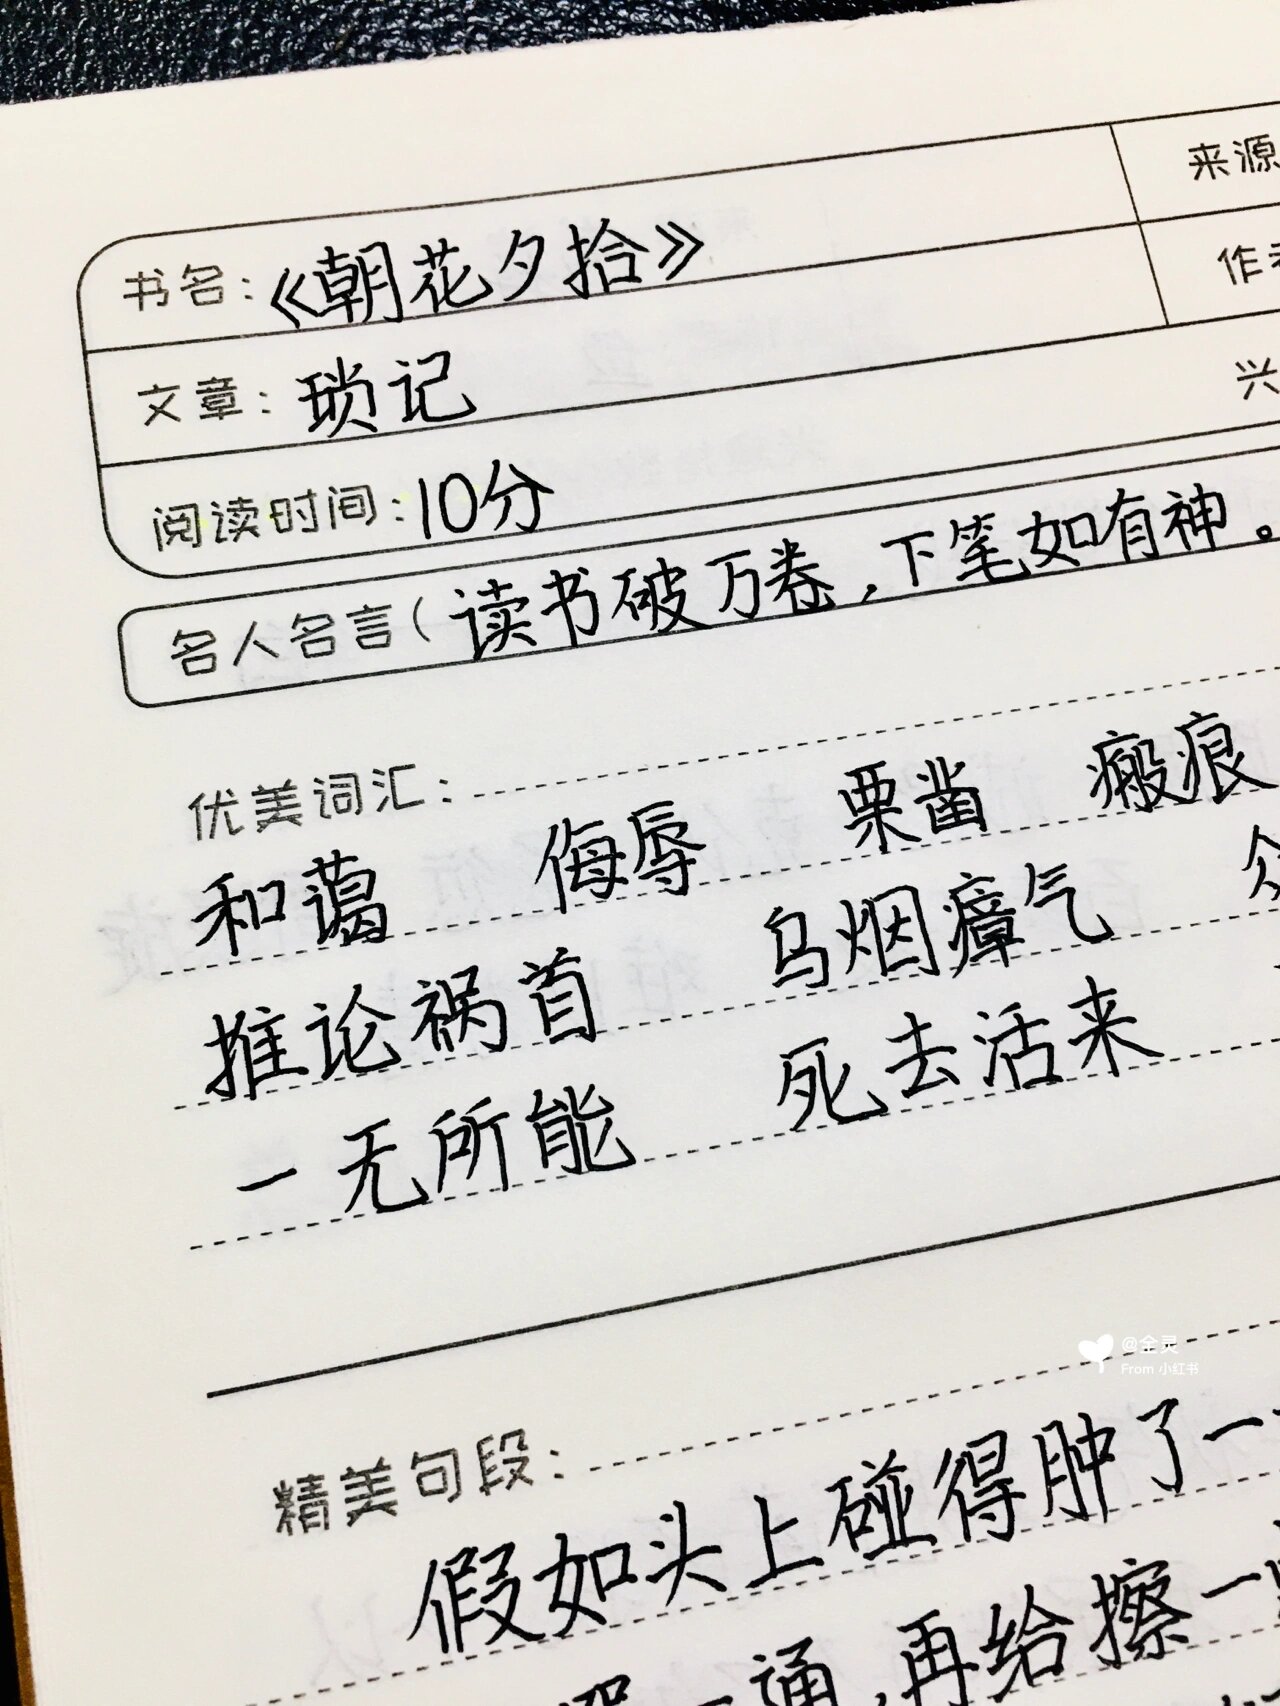 来源
书名：《朝花夕拾》
作
文章：琐记
兴
阅读时间：10分
名人名言（读书破万卷，下笔如有神。
优美词汇：
和蔼 侮辱 栗凿 瘢痕
推论祸首 乌烟瘴气
一无所能 死去活来
@全灵
From 小红书
精美句段：
假如头上碰得肿了一
一通，再给擦一